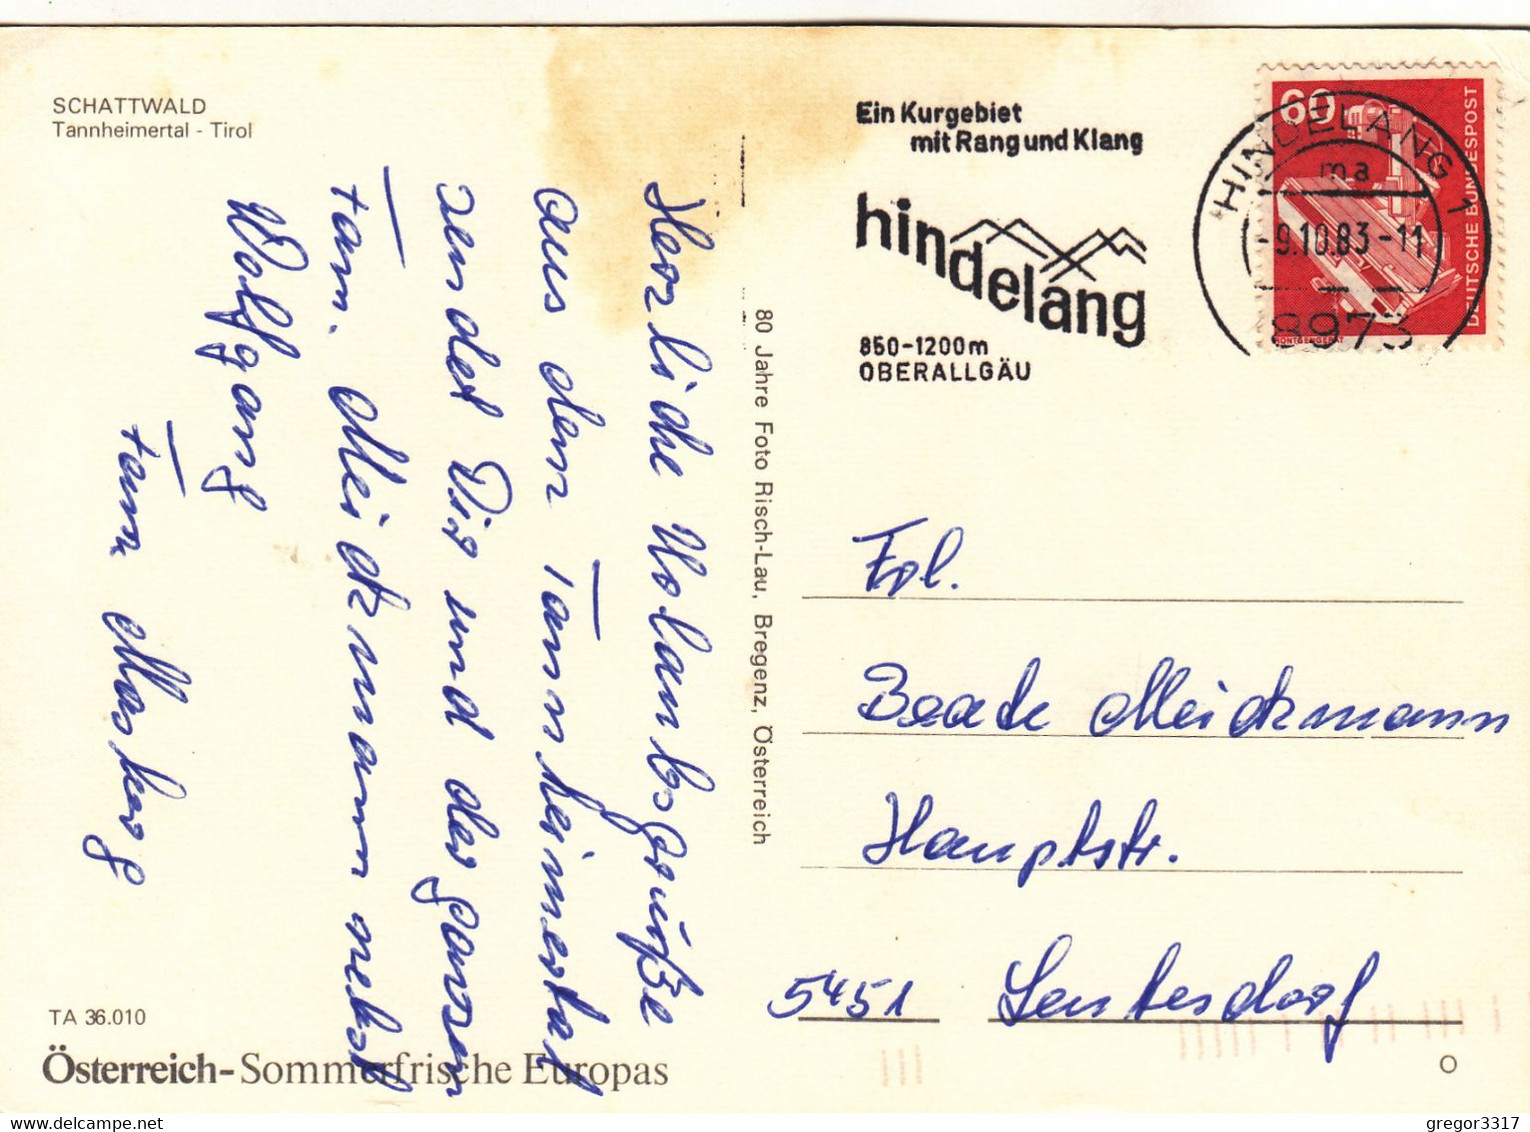 SCHATTWALD
Tannheimertal - Tirol
Herzliche Urlaubsgrüße
aus dem Tannheimertal
sendet Dir und der ganzen
Fam. Meickmann nebst
Wolfgang
Fam. Masberg
TA 36.010
Österreich-Sommerfrische Europas
80 Jahre Foto Risch-Lau, Bregenz, Österreich
Ein Kurgebiet
mit Rang und Klang
hindelang
850-1200m
OBERALLGÄU
HINDELANG 1
ma
-9.10.83-11
8973
60
DEUTSCHE BUNDESPOST
RÖNTGENGERÄT
Frl.
Beate Meickmann
Hauptstr.
5451 Leutesdorf
O
gregor3317